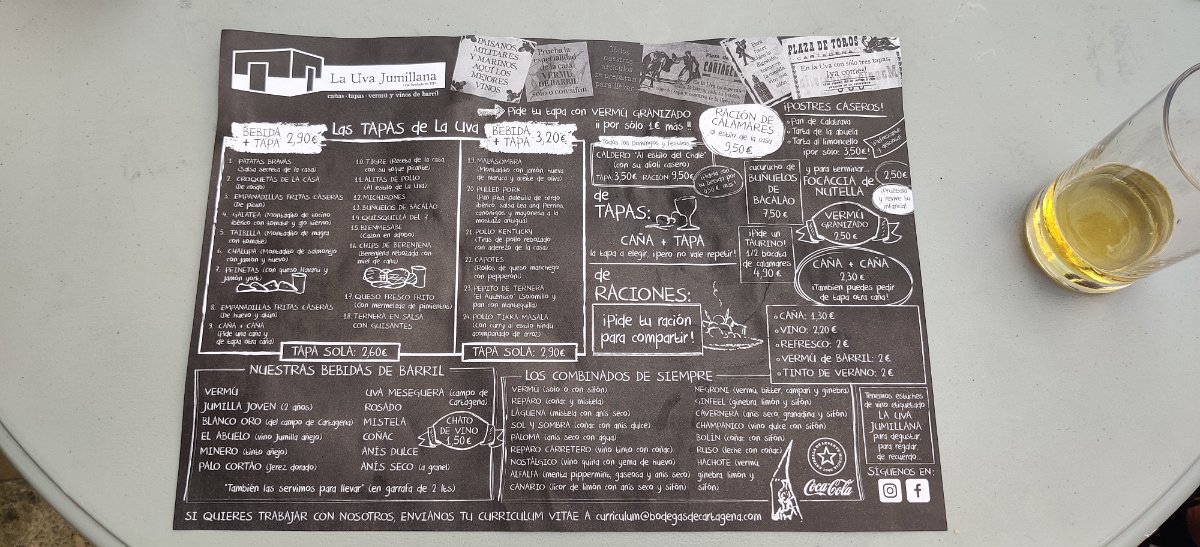 La Uva Jumillana
catas · tapas · vermú y vinos de barril
PAISANOS,
MILITARES
Y MARINOS,
AQUÍ LOS
MEJORES
VINOS
Prueba la
especialidad
de la casa
VERMÚ
DE BARRIL
sólo o con sifón
Todos
nuestros
se preparan
para llevar
Plaza de
PLAZA DE TOROS
CARTAGENA
En la Uva con sólo tres tapas,
¡ya comes!
Pide tu tapa con VERMÚ GRANIZADO
¡¡ por sólo 1€ más !!
BEBIDA
+ TAPA 2,90€
Las TAPAS de La Uva
BEBIDA
+ TAPA 3,20€
1. PATATAS BRAVAS
(Salsa secreta de la casa)
2. CROQUETAS DE LA CASA
(De cocido)
3. EMPANADILLAS FRITAS CASERAS
(De pisto)
4. GALATEA (Montadito de tocino
ibérico con tomate y ajo tierno)
5. TAIBILLA (Montadito de magra
con tomate)
6. CHALUPA (Montadito de salmorejo
con jamón y huevo)
7. PEINETAS (con queso Havarti y
jamón york)
8. EMPANADILLAS FRITAS CASERAS
(De huevo y atún)
9. CAÑA + CAÑA
(Pide una caña y
de tapa otra caña)
10. TIGRE (Receta de la casa
con su toque picante)
11. ALITAS DE POLLO
(Al estilo de La Uva)
12. MICHIRONES
13. BUÑUELOS DE BACALAO
14. QUISQUILLA DEL 7
15. BIENMESABE
(Cazón en adobo)
16. CHIPS DE BERENJENA
(Berenjena rebozada con
miel de caña)
17. QUESO FRESCO FRITO
(Con mermelada de pimientos)
18. TERNERA EN SALSA
CON GUISANTES
TAPA SOLA: 2,60€
19. MALASOMBRA
(Montadito con jamón, hueva
de maruca y aceite de oliva)
20. PULLED PORK
(Pan pita, paletilla de cerdo
ibérico, salsa Lea and Perrins,
canónigos y mayonesa a la
mostaza antigua)
21. POLLO KENTUCKY
(Tiras de pollo rebozado
con aderezo de la casa)
22. CAPOTES
(Rollos de queso manchego
con pepperoni)
23. PEPITO DE TERNERA
"El Auténtico" (Solomillo y
pan con mantequilla)
24. POLLO TIKKA MASALA
(Con curry al estilo hindú
acompañado de arroz)
TAPA SOLA: 2,90€
Todos los domingos y festivos
CALDERO "Al estilo del Chalé"
(con su alioli casero)
TAPA 3,50€ RACIÓN 9,50€
RACIÓN DE
CALAMARES
al estilo de la casa
9,50€
de
TAPAS:
CAÑA + TAPA
la tapa a elegir, ¡pero no vale repetir!
de
RACIONES:
¡Pide tu ración
para compartir!
cucurucho de
BUÑUELOS
DE
BACALAO
7,50€
¡Pide un
TAURINO!
1/2 bocata
de calamares
4,90€
¡POSTRES CASEROS!
Pan de Calatrava
Tarta de la abuela
Tarta de limoncello
¡por sólo: 3,50€!
y para terminar...
FOCACCIA de
NUTELLA
2,50€
¡Pruébala
y revive tu
infancia!
VERMÚ
GRANIZADO
2,50€
CAÑA + CAÑA
2,30€
¡También puedes pedir
de tapa otra caña!
CAÑA: 1,30€
VINO: 2,20€
REFRESCO: 2€
VERMÚ de BARRIL: 2€
TINTO DE VERANO: 2€
NUESTRAS BEBIDAS DE BARRIL
VERMÚ
JUMILLA JOVEN (2 años)
BLANCO ORO (del campo de Cartagena)
EL ABUELO (vino Jumilla añejo)
MINERO (tinto añejo)
PALO CORTAO (Jerez dorado)
UVA MESEGUERA (campo de
Cartagena)
ROSADO
MISTELA
COÑAC
ANÍS DULCE
ANÍS SECO (a granel)
CHATO
DE VINO
1,50€
"También las servimos para llevar" (en garrafa de 2 lts)
LOS COMBINADOS DE SIEMPRE
VERMÚ (sólo o con sifón)
REPARO (coñac y mistela)
LÁGUENA (mistela con anís seco)
SOL Y SOMBRA (coñac con anís dulce)
PALOMA (anís seco con agua)
REPARO CARRETERO (vino tinto con coñac)
NOSTÁLGICO (vino quina con yema de huevo)
ALFALFA (menta pippermint, gaseosa y anís seco)
CANARIO (licor de limón con anís seco y sifón)
NEGRONI (vermú, bitter, campari y ginebra)
GINFEEL (ginebra, limón y sifón)
CAVERNERA (anís seco, granadina y sifón)
CHAMPANICO (vino dulce con sifón)
BOLÍN (coñac con sifón)
RUSO (leche con coñac)
HACHOTE (vermú,
ginebra, limón y
sifón)
Coca-Cola
Tenemos estuches
de vino etiquetado
LA UVA
JUMILLANA
para degustar,
para regalar,
de recuerdo...
SÍGUENOS EN:
SI QUIERES TRABAJAR CON NOSOTROS, ENVÍANOS TU CURRICULUM VITAE A curriculum@bodegasdecartagena.com